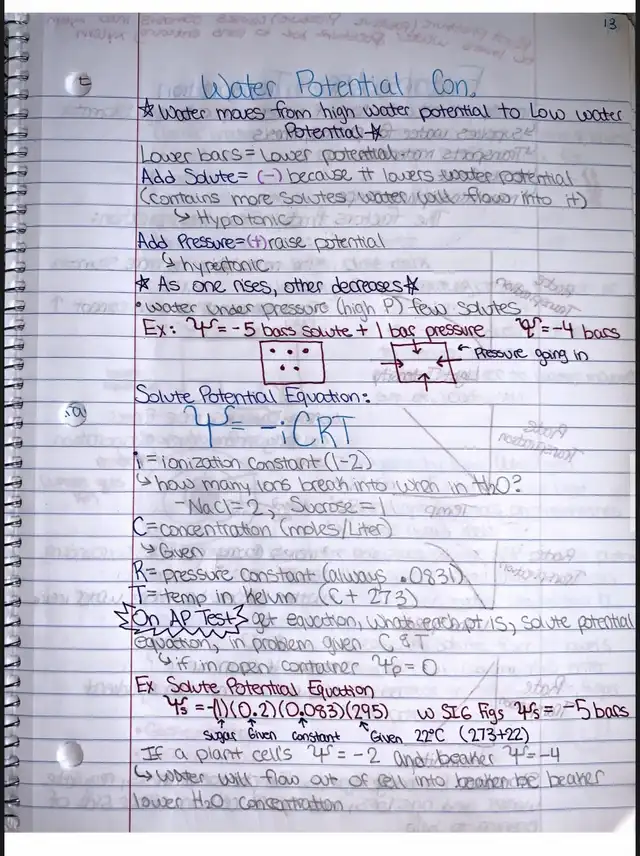 13
Water Potential Con.
☆Water moves from high water potential to Low water
Potential☆
Lower bars = Lower potential
Add Solute = (-) because it lowers water potential
(contains more solutes, water will flow into it)
↳ Hypotonic
Add Pressure = (+) raise potential
↳ hypertonic
☆ As one rises, other decreases☆
• Water under pressure (high P) few solutes
Ex: Ψ = -5 bars solute + 1 bar pressure Ψ = -4 bars
← Pressure going in
Solute Potential Equation:
Ψ = -iCRT
i = ionization constant (1-2)
↳ how many ions break into when in H2O?
- NaCl = 2, Sucrose = 1
C = concentration (moles/Liter)
↳ Given
R = pressure constant (always .0831)
T = temp in Kelvin (C + 273)
On AP Test get equation, what each pt is, solute potential
equation, in problem given C & T
↳ if in open container Ψp = 0
Ex Solute Potential Equation
Ψs = -(1)(0.2)(0.083)(295) w SIG Figs Ψs = -5 bars
sugar Given constant Given 22°C (273+22)
If a plant cell's Ψ = -2 and beaker Ψ = -4
↳ Water will flow out of cell into beaker bc beaker
lower H2O concentration